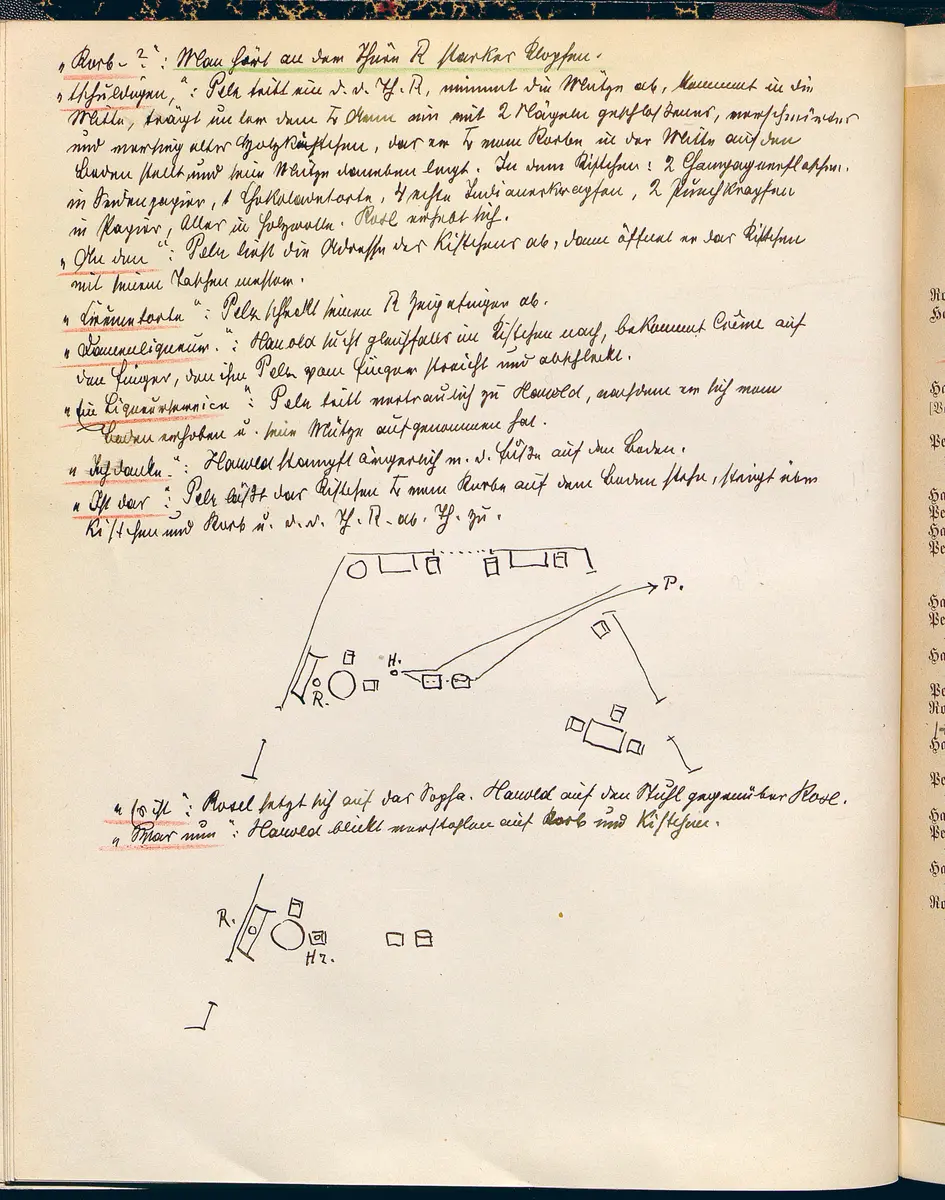 „Korb-?“: Man hört an der Thüre R starkes Klopfen.
„tschuldigen,“: Pelz tritt ein d. d. Th. R, nimmt die Mütze ab, kommt in die
Mitte, trägt unter dem L Arm ein mit 2 Nägeln geschlossenes, verschmiertes
und altes Holzkistchen, das er L vom Korbe in der Mitte auf den
Boden stellt und seine Mütze daneben legt. In dem Kistchen: 2 Champagnerflaschen
in Seidenpapier, 1 Chokoladetorte, 4 echte Indianerkrapfen, 2 Punschkrapfen
in Papier, Alles in Holzwolle. Rosl erhebt sich.
„An den“: Pelz liest die Adresse des Kistchens ab, dann öffnet er das Kistchen
mit seinem Taschenmesser.
„Crèmetorte“: Pelz schleckt seinen R Zeigefinger ab.
„Damenliqueur.“: Harold sieht gleichfalls im Kistchen nach, bekommt Crème auf
den Finger, den ihm Pelz vom Finger streicht und abschleckt.
„Ein Liqueurservice“: Pelz tritt vertraulich zu Harold, nachdem er sich vom
Boden erhoben u. seine Mütze aufgenommen hat.
„Ich danke“: Harold stampft ärgerlich m. d. Füße auf den Boden.
„Ist das“: Pelz läßt das Kistchen L vom Korbe auf dem Boden stehn, steigt über
Kistchen und Korb u. d. d. Th. R. ab. Th. zu.
P.
H.
R.
„Es ist“: Rosel setzt sich auf das Sopha. Harold auf den Stuhl gegenüber Rosl.
„Was nun“: Harold blickt verstohlen auf Korb und Kistchen.
R.
Hr.